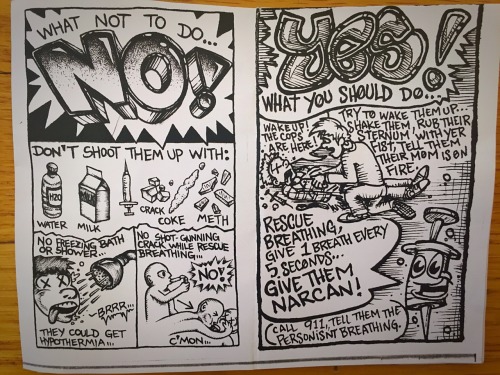 WHAT NOT TO DO...
NO!!
DON'T SHOOT THEM UP WITH:
H2O
WATER
MILK
CRACK
COKE
METH
NO FREEZING BATH
OR SHOWER...
BRRR...
THEY COULD GET
HYPOTHERMIA...
NO SHOT-GUNNING
CRACK WHILE RESCUE
BREATHING...
NO!
C'MON...
YES!
WHAT YOU SHOULD DO...
WAKE UP!
THE COPS
ARE HERE!
TRY TO WAKE THEM UP...
SHAKE THEM, RUB THEIR
STERNUM, WITH YER
FIST, TELL THEM
THEIR MOM IS ON
FIRE.
RESCUE
BREATHING,
GIVE 1 BREATH EVERY
5 SECONDS...
GIVE THEM
NARCAN!
CALL 911, TELL THEM THE
PERSON ISNT BREATHING.